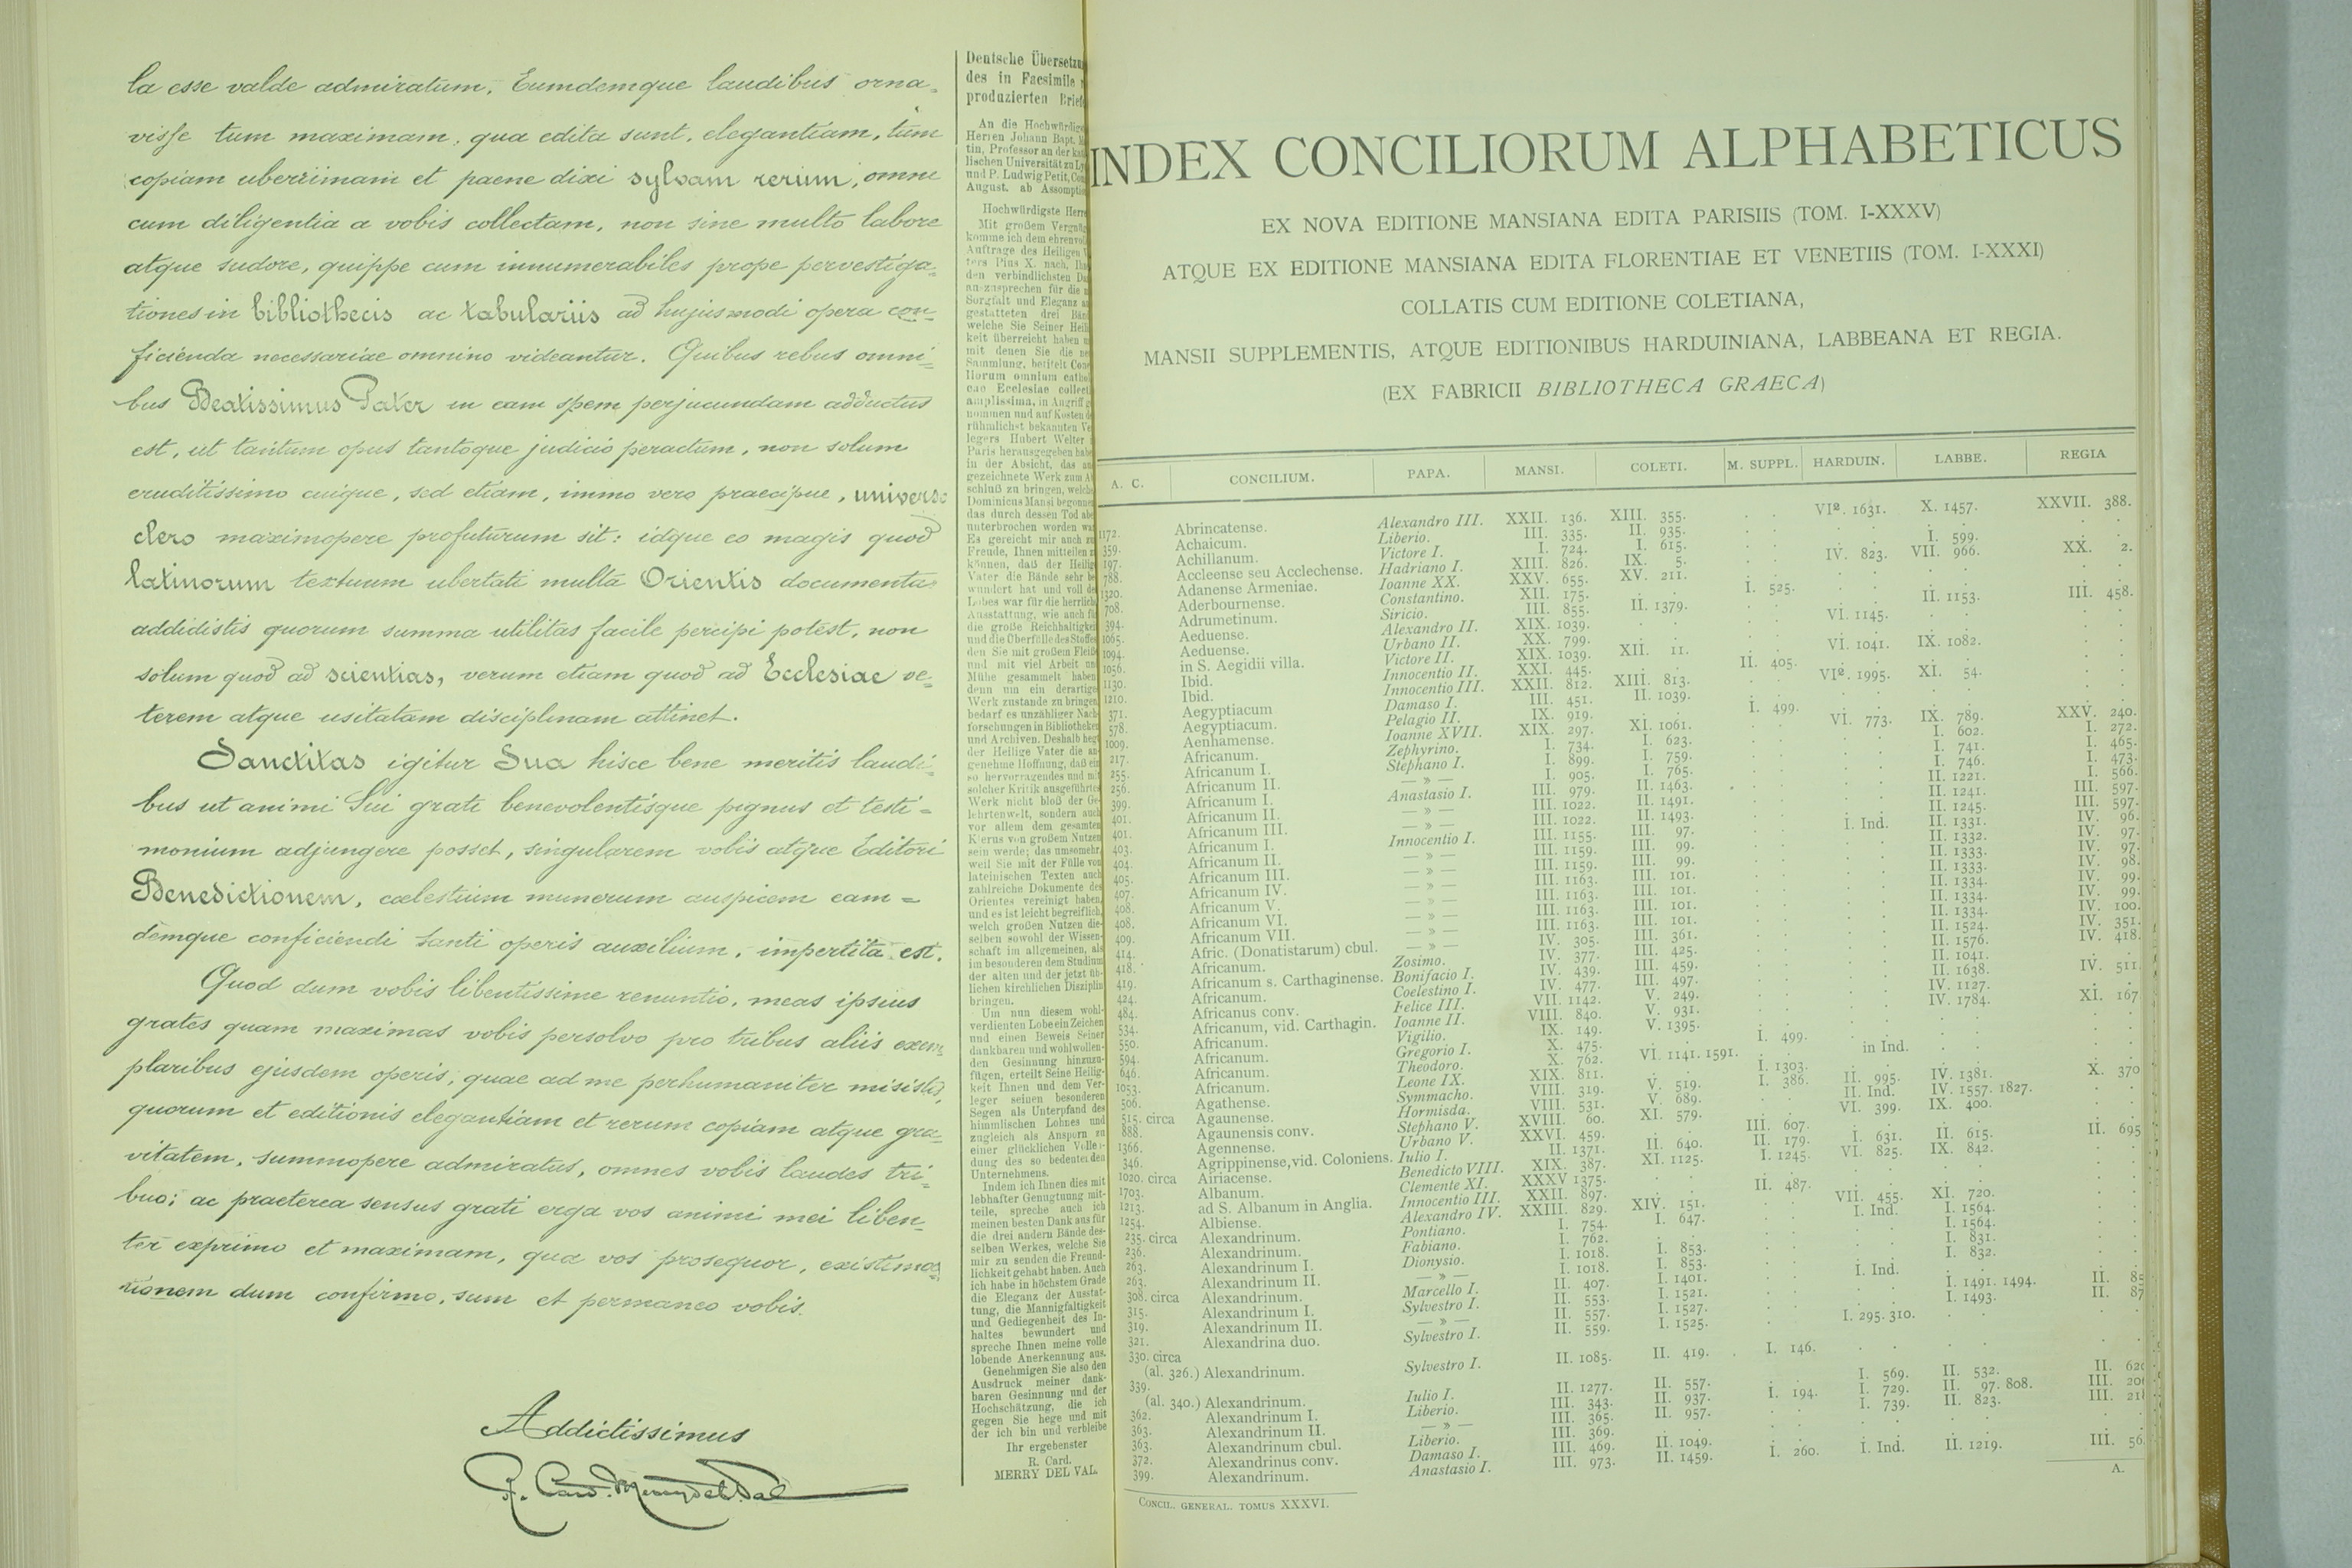 la esse valde admiratum. Eumdemque laudibus orna=
visse tum maximam, qua edita sunt, elegantiam, tum
copiam uberrimam et paene dixi sylvam rerum, omni
cum diligentia a vobis collectam, non sine multo labore
atque sudore, quippe cum innumerabiles prope pervestiga=
tiones in bibliothecis ac tabulariis ad hujusmodi opera con=
ficienda necessariae omnino videantur. Quibus rebus omni=
bus Beatissimus Pater in eam spem perjucundam adductus
est, ut tantum opus tantoque judicio peractum, non solum
eruditissimo cuique, sed etiam, immo vero praecipue, universo
clero maximopere profuturum sit: idque eo magis quod
latinorum textuum ubertati multa Orientis documenta
addidistis quorum summa utilitas facile percipi potest, non
solum quod ad scientias, verum etiam quod ad Ecclesiae ve=
terem atque usitatam disciplinam attinet.
Sanctitas igitur Sua hisce bene meritis laudi=
bus ut animi Sui grati benevolentisque pignus et testi=
monium adjungere posset, singularem vobis atque Editori
Benedictionem, cœlestium munerum auspicem eam=
demque conficiendi tanti operis auxilium, impertita est.
Quod dum vobis libentissime renuntio, meas ipsius
grates quam maximas vobis persolvo pro tribus aliis exem=
plaribus ejusdem operis, quae ad me perhumaniter misistis,
quorum et editionis elegantiam et rerum copiam atque gra=
vitatem, summopere admiratus, omnes vobis laudes tri=
buo; ac praeterea sensus grati erga vos animi mei liben=
ter exprimo et maximam, qua vos prosequor, existima=
tionem dum confirmo, sum et permaneo vobis.
Addictissimus
R. Card. Merry del Val
Deutsche Übersetzu
des in Facsimile
produzierten Brief
An die Hochwürdige
Herren Johann Bapt. M
tin, Professor an der kat
lischen Universität zu Ly
und P. Ludwig Petit, Con
August. ab Assomptio
Hochwürdigste Herre
Mit großem Vergnüg
komme ich dem ehrenvoll
Auftrage des Heiligen V
ters Pius X. nach, Ihn
den verbindlichsten Da
auszusprechen für die
Sorgfalt und Eleganz a
gestatteten drei Bän
welche Sie Seiner Heili
keit überreicht haben u
mit denen Sie die ne
Sammlung, betitelt Conc
iliorum omnium cathol
cae Ecclesiae collecti
amplissima, in Angriff g
nommen und auf Kosten d
rühmlichst bekannten Ve
legers Hubert Welter
Paris herausgegeben habe
in der Absicht, das au
gezeichnete Werk zum A
schluß zu bringen, welche
Dominicus Mansi begonne
das durch dessen Tod abe
unterbrochen worden wa
Es gereicht mir auch zu
Freude, Ihnen mitteilen z
können, daß der Heilig
Vater die Bände sehr be
wundert hat und voll de
Lobes war für die herrlich
Ausstattung, wie auch fü
die große Reichhaltigkei
und die Überfülle des Stoffes
den Sie mit großem Fleiß
und mit viel Arbeit und
Mühe gesammelt haben,
denn um ein derartiges
Werk zustande zu bringen,
bedarf es unzähliger Nach-
forschungen in Bibliotheken
und Archiven. Deshalb hegt
der Heilige Vater die an-
genehme Hoffnung, daß ein
so hervorragendes und mit
solcher Kritik ausgeführtes
Werk nicht bloß der Ge-
lehrtenwelt, sondern auch
vor allem dem gesamten
Klerus von großem Nutzen
sein werde; das umsomehr,
weil Sie mit der Fülle von
lateinischen Texten auch
zahlreiche Dokumente des
Orientes vereinigt haben,
und es ist leicht begreiflich,
welch großen Nutzen die-
selben sowohl der Wissen-
schaft im allgemeinen, als
im besonderen dem Studium
der alten und der jetzt üb-
lichen kirchlichen Disziplin
bringen.
Um nun diesem wohl-
verdienten Lobe ein Zeichen
und einen Beweis Seiner
dankbaren und wohlwollen-
den Gesinnung hinzuzu-
fügen, erteilt Seine Heilig-
keit Ihnen und dem Ver-
leger seinen besonderen
Segen als Unterpfand des
himmlischen Lohnes und
zugleich als Ansporn zu
einer glücklichen Vollen-
dung des so bedeutenden
Unternehmens.
Indem ich Ihnen dies mit
lebhafter Genugtuung mit-
teile, spreche auch ich
meinen besten Dank aus für
die drei andern Bände des-
selben Werkes, welche Sie
mir zu senden die Freund-
lichkeit gehabt haben. Auch
ich habe in höchstem Grade
die Eleganz der Ausstat-
tung, die Mannigfaltigkeit
und Gediegenheit des In-
haltes bewundert und
spreche Ihnen meine volle
lobende Anerkennung aus.
Genehmigen Sie also den
Ausdruck meiner dank-
baren Gesinnung und der
Hochschätzung, die ich
gegen Sie hege und mit
der ich bin und verbleibe
Ihr ergebenster
R. Card.
MERRY DEL VAL.
INDEX CONCILIORUM ALPHABETICUS
EX NOVA EDITIONE MANSIANA EDITA PARISIIS (TOM. I-XXXV)
ATQUE EX EDITIONE MANSIANA EDITA FLORENTIAE ET VENETIIS (TOM. I-XXXI)
COLLATIS CUM EDITIONE COLETIANA,
MANSII SUPPLEMENTIS, ATQUE EDITIONIBUS HARDUINIANA, LABBEANA ET REGIA.
(EX FABRICII BIBLIOTHECA GRAECA)
A. C. CONCILIUM. PAPA. MANSI. COLETI. M. SUPPL. HARDUIN. LABBE. REGIA
1172. Abrincatense. Alexandro III. XXII. 136. XIII. 355. VI². 1631. X. 1457. XXVII. 388.
359. Achaicum. Liberio. III. 335. II. 935.
197. Achillanum. Victore I. I. 724. I. 615. I. 599.
788. Accleense seu Acclechense. Hadriano I. XIII. 826. IX. 5. IV. 823. VII. 966. XX. 2.
1320. Adanense Armeniae. Ioanne XX. XXV. 655. XV. 211.
708. Aderbournense. Constantino. XII. 175. I. 525.
394. Adrumetinum. Siricio. III. 855. II. 1379. II. 1153. III. 458.
1065. Aeduense. Alexandro II. XIX. 1039. VI. 1145.
1094. Aeduense. Urbano II. XX. 799.
1056. in S. Aegidii villa. Victore II. XIX. 1039. XII. 11. VI. 1041. IX. 1082.
1130. Ibid. Innocentio II. XXI. 445. II. 405.
1210. Ibid. Innocentio III. XXII. 812. XIII. 813. VI². 1995. XI. 54.
371. Aegyptiacum Damaso I. III. 451. II. 1039.
578. Aegyptiacum. Pelagio II. IX. 919. I. 499.
1009. Aenhamense. Ioanne XVII. XIX. 297. XI. 1061. VI. 773. IX. 789. XXV. 240.
217. Africanum. Zephyrino. I. 734. I. 623. I. 602. I. 272.
255. Africanum I. Stephano I. I. 899. I. 759. I. 741. I. 465.
256. Africanum II. — » — I. 905. I. 765. I. 746. I. 473.
399. Africanum I. Anastasio I. III. 979. II. 1463. II. 1221. I. 566.
401. Africanum II. — » — III. 1022. II. 1491. II. 1241. III. 597.
401. Africanum III. — » — III. 1022. II. 1493. II. 1245. III. 597.
403. Africanum I. Innocentio I. III. 1155. III. 97. I. Ind. II. 1331. IV. 96.
404. Africanum II. — » — III. 1159. III. 99. II. 1332. IV. 97.
405. Africanum III. — » — III. 1159. III. 99. II. 1333. IV. 97.
407. Africanum IV. — » — III. 1163. III. 101. II. 1333. IV. 98.
408. Africanum V. — » — III. 1163. III. 101. II. 1334. IV. 99.
408. Africanum VI. — » — III. 1163. III. 101. II. 1334. IV. 99.
409. Africanum VII. — » — III. 1163. III. 101. II. 1334. IV. 100.
414. Afric. (Donatistarum) cbul. — » — IV. 305. III. 361. II. 1524. IV. 351.
418. Africanum. Zosimo. IV. 377. III. 425. II. 1576. IV. 418.
419. Africanum s. Carthaginense. Bonifacio I. IV. 439. III. 459. II. 1041.
424. Africanum. Coelestino I. IV. 477. III. 497. II. 1638. IV. 511.
484. Africanus conv. Felice III. VII. 1142. V. 249. IV. 1127.
534. Africanum, vid. Carthagin. Ioanne II. VIII. 840. V. 931. IV. 1784. XI. 167
550. Africanum. Vigilio. IX. 149. V. 1395.
594. Africanum. Gregorio I. X. 475. I. 499.
646. Africanum. Theodoro. X. 762. VI. 1141. 1591. in Ind.
1053. Africanum. Leone IX. XIX. 811. I. 1303.
506. Agathense. Symmacho. VIII. 319. V. 519. I. 386. II. 995. IV. 1381. X. 370
515. circa Agaunense. Hormisda. VIII. 531. V. 689. II. Ind. IV. 1557. 1827.
888. Agaunensis conv. Stephano V. XVIII. 60. XI. 579. VI. 399. IX. 400.
1366. Agennense. Urbano V. XXVI. 459. III. 607.
346. Agrippinense, vid. Coloniens. Iulio I. II. 1371. II. 640. II. 179. I. 631. II. 615. II. 695
1020. circa Airiacense. Benedicto VIII. XIX. 387. XI. 1125. I. 1245. VI. 825. IX. 842.
1703. Albanum. Clemente XI. XXXV 1375.
1213. ad S. Albanum in Anglia. Innocentio III. XXII. 897. II. 487.
1254. Albiense. Alexandro IV. XXIII. 829. XIV. 151. VII. 455. XI. 720.
235. circa Alexandrinum. Pontiano. I. 754. I. 647. I. Ind. I. 1564.
236. Alexandrinum. Fabiano. I. 762. I. 1564.
263. Alexandrinum I. Dionysio. I. 1018. I. 853. I. 831.
263. Alexandrinum II. — » — I. 1018. I. 853. I. 832.
308. circa Alexandrinum. Marcello I. II. 407. I. 1401. I. Ind.
315. Alexandrinum I. Sylvestro I. II. 553. I. 1521. I. 1491. 1494. II. 85
319. Alexandrinum II. — » — II. 557. I. 1527. I. 1493. II. 87
321. Alexandrina duo. Sylvestro I. II. 559. I. 1525. I. 295. 310.
330. circa
(al. 326.) Alexandrinum. Sylvestro I. II. 1085. II. 419. I. 146.
339.
(al. 340.) Alexandrinum. Iulio I. II. 1277. II. 557. I. 569. II. 532. II. 620
362. Alexandrinum I. Liberio. III. 343. II. 937. I. 194. I. 729. II. 97. 808. III. 20
363. Alexandrinum II. — » — III. 365. II. 957. I. 739. II. 823. III. 218
363. Alexandrinum cbul. Liberio. III. 369.
372. Alexandrinus conv. Damaso I. III. 469. II. 1049.
399. Alexandrinum. Anastasio I. III. 973. II. 1459. I. 260. I. Ind. II. 1219. III. 56
CONCIL. GENERAL. TOMUS XXXVI.
A.